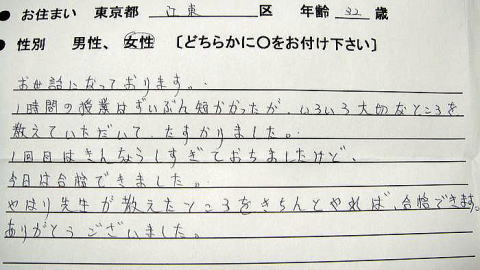 ● お住まい 東京都 江東 区 年齢 32 歳
● 性別 男性、 女性 〔どちらかに〇をお付け下さい〕
お世話になっております。
1時間の授業はずいぶん短かかったが、いろいろ大切なところを
教えていただいて、たすかりました。
1回目はきんちょうしすぎておちましたけど、
今日は合格できました。
やはり先生が教えたところをきちんとやれば、合格できます。
ありがとうございました。